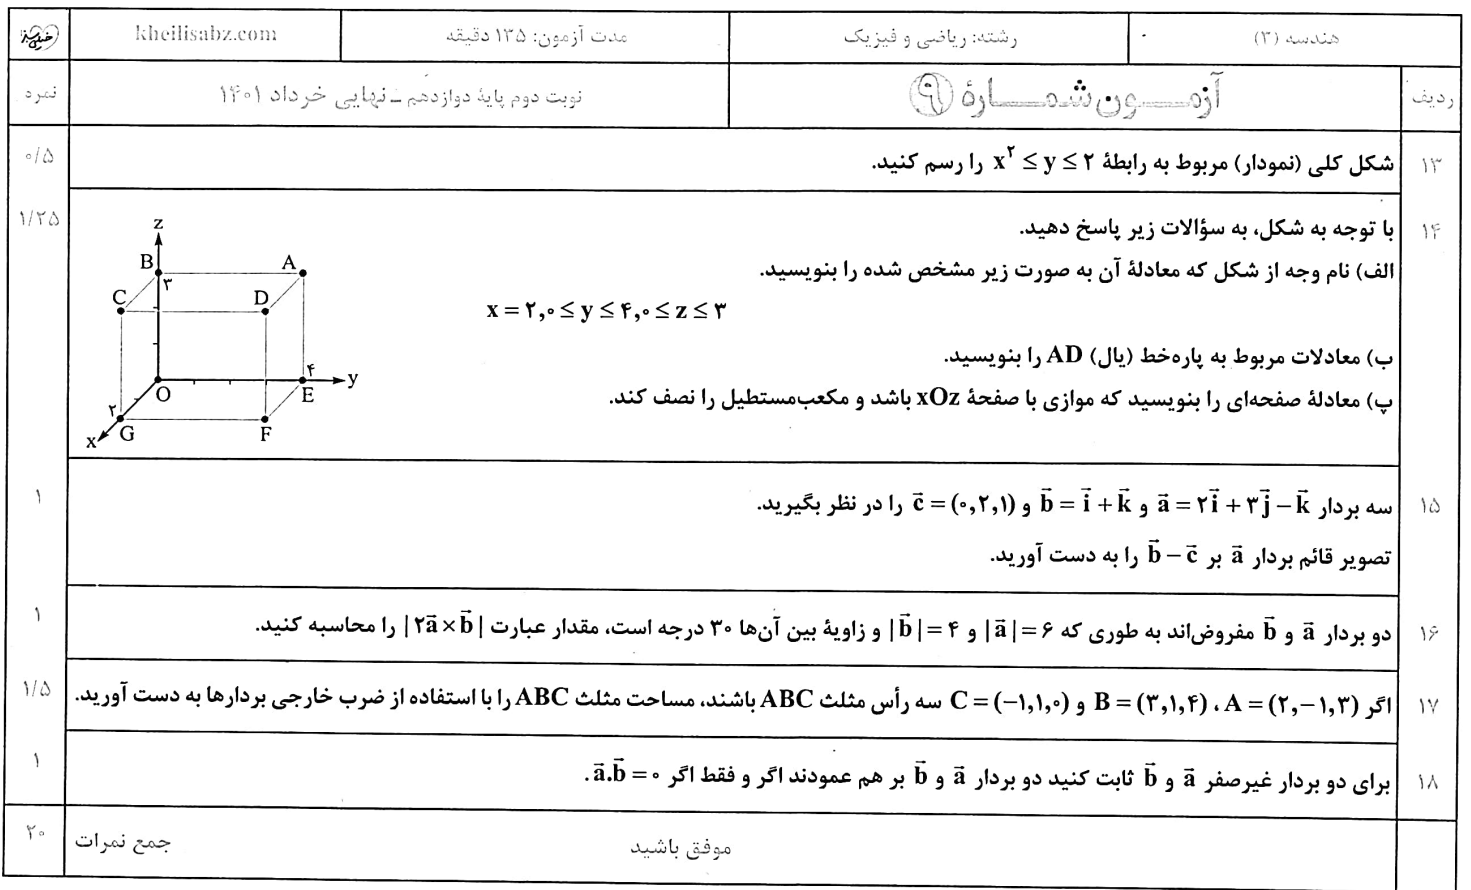 هندسه (۳) رشته: ریاضی و فیزیک مدت آزمون: ۱۳۵ دقیقه kheilisabz.com خیلی سبز
ردیف آزمون شمارهٔ ۹ نوبت دوم پایهٔ دوازدهم ـ نهایی خرداد ۱۴۰۱ نمره
۱۳ شکل کلی (نمودار) مربوط به رابطهٔ x² ≤ y ≤ ۲ را رسم کنید. ۰/۵
۱۴ با توجه به شکل، به سؤالات زیر پاسخ دهید. ۱/۲۵
الف) نام وجه از شکل که معادلهٔ آن به صورت زیر مشخص شده را بنویسید.
x = ۲, ۰ ≤ y ≤ ۴, ۰ ≤ z ≤ ۳
ب) معادلات مربوط به پاره‌خط (یال) AD را بنویسید.
پ) معادلهٔ صفحه‌ای را بنویسید که موازی با صفحهٔ xOz باشد و مکعب‌مستطیل را نصف کند.
z
B A
۳
C D
۴
O E y
۲
G F
x
۱۵ سه بردار a⃗ = ۲i⃗ + ۳j⃗ − k⃗ و b⃗ = i⃗ + k⃗ و c⃗ = (۰,۲,۱) را در نظر بگیرید. ۱
تصویر قائم بردار a⃗ بر b⃗ − c⃗ را به دست آورید.
۱۶ دو بردار a⃗ و b⃗ مفروض‌اند به طوری که |a⃗| = ۶ و |b⃗| = ۴ و زاویهٔ بین آن‌ها ۳۰ درجه است، مقدار عبارت |۲a⃗ × b⃗| را محاسبه کنید. ۱
۱۷ اگر A = (۲,−۱,۳)، B = (۳,۱,۴) و C = (−۱,۱,۰) سه رأس مثلث ABC باشند، مساحت مثلث ABC را با استفاده از ضرب خارجی بردارها به دست آورید. ۱/۵
۱۸ برای دو بردار غیرصفر a⃗ و b⃗ ثابت کنید دو بردار a⃗ و b⃗ بر هم عمودند اگر و فقط اگر a⃗.b⃗ = ۰. ۱
موفق باشید جمع نمرات ۲۰